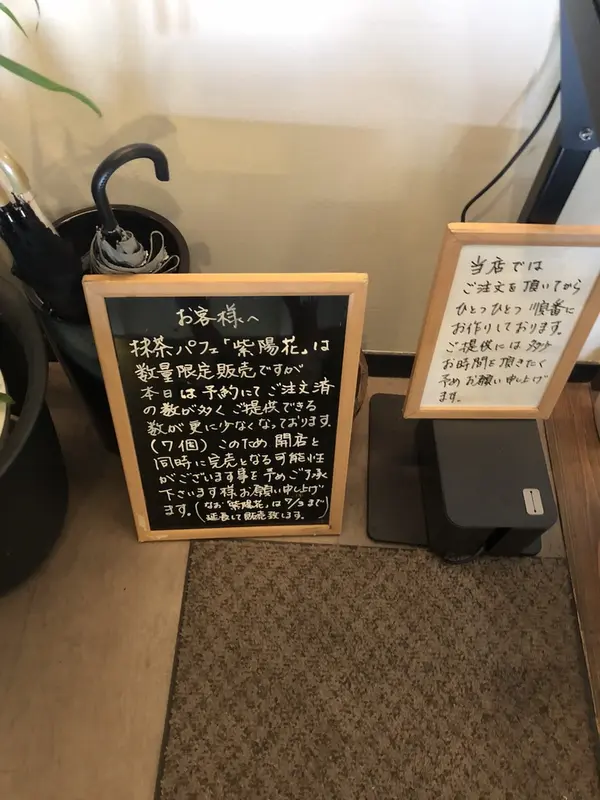 お客様へ
抹茶パフェ「紫陽花」は
数量限定販売ですが
本日は予約にてご注文済
の数が多くご提供できる
数が更に少なくなっております。
(7個)このため開店と
同時に完売となる可能性
がございます事を予めご了承
下さいます様お願い申し上げ
ます。(なお「紫陽花」は7/3まで
延長して販売致します。
当店では
ご注文を頂いてから
ひとつひとつ順番に
お作りしております。
ご提供には多少
お時間を頂きたく
予めお願い申し上げ
ます。